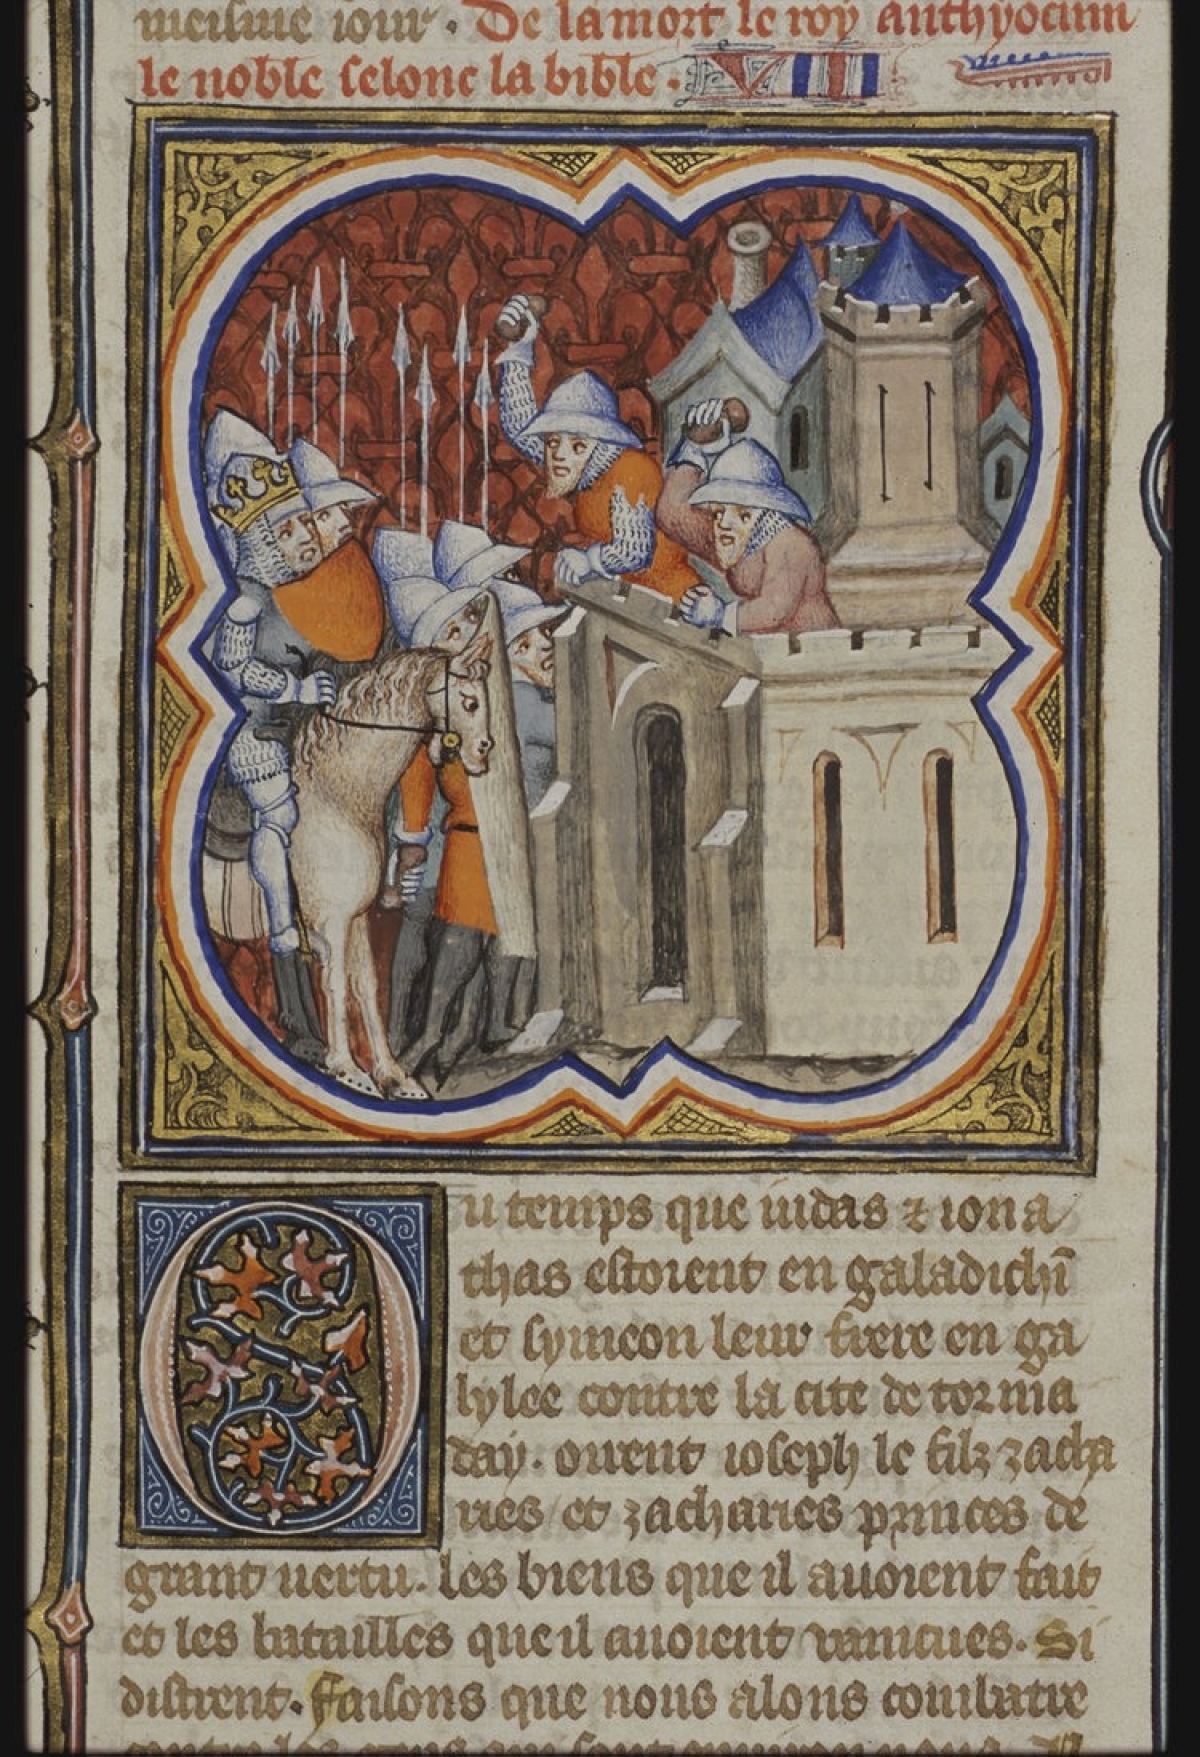 meisme iour. De la mort le roy anthyocum
le noble selonc la bible. VII
u temps que iudas & iona
thas estoient en galadich̄i
et symeon leur frere en ga
lylee contre la cite de torma
day. oirent ioseph le filz zacha
ries et zacharies princes de
grant uertu. les biens que il auoient fait
et les batailles que il auoient uaincues. Si
distrent. faisons que nous alons combatre